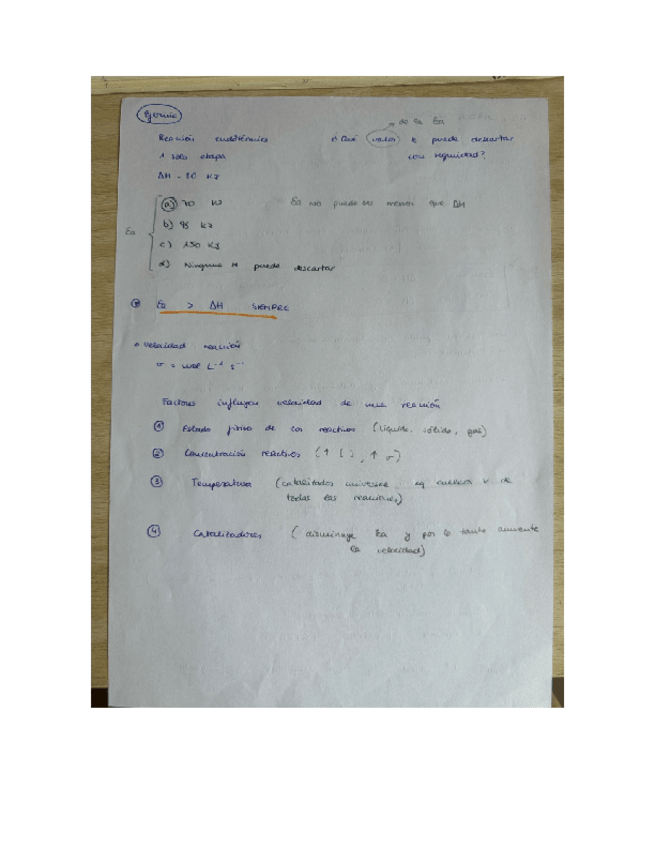 Ejercicio
de la Ea
Reacción endotérmica ¿Qué valor se puede descartar
1 sola etapa con seguridad?
ΔH = 80 kJ
Ea
a) 70 kJ Ea no puede ser menor que ΔH
b) 95 kJ
c) 150 kJ
d) Ninguna se puede descartar
Ea > ΔH SIEMPRE
velocidad reacción
v = mol L⁻¹ s⁻¹
Factores influyen velocidad de una reacción
① Estado físico de los reactivos (líquido, sólido, gas)
② Concentración reactivos (↑ [ ], ↑ v)
③ Temperatura (catalizador universal, v de
todas las reacciones)
④ Catalizadores (disminuye Ea y por lo tanto aumenta
la velocidad)